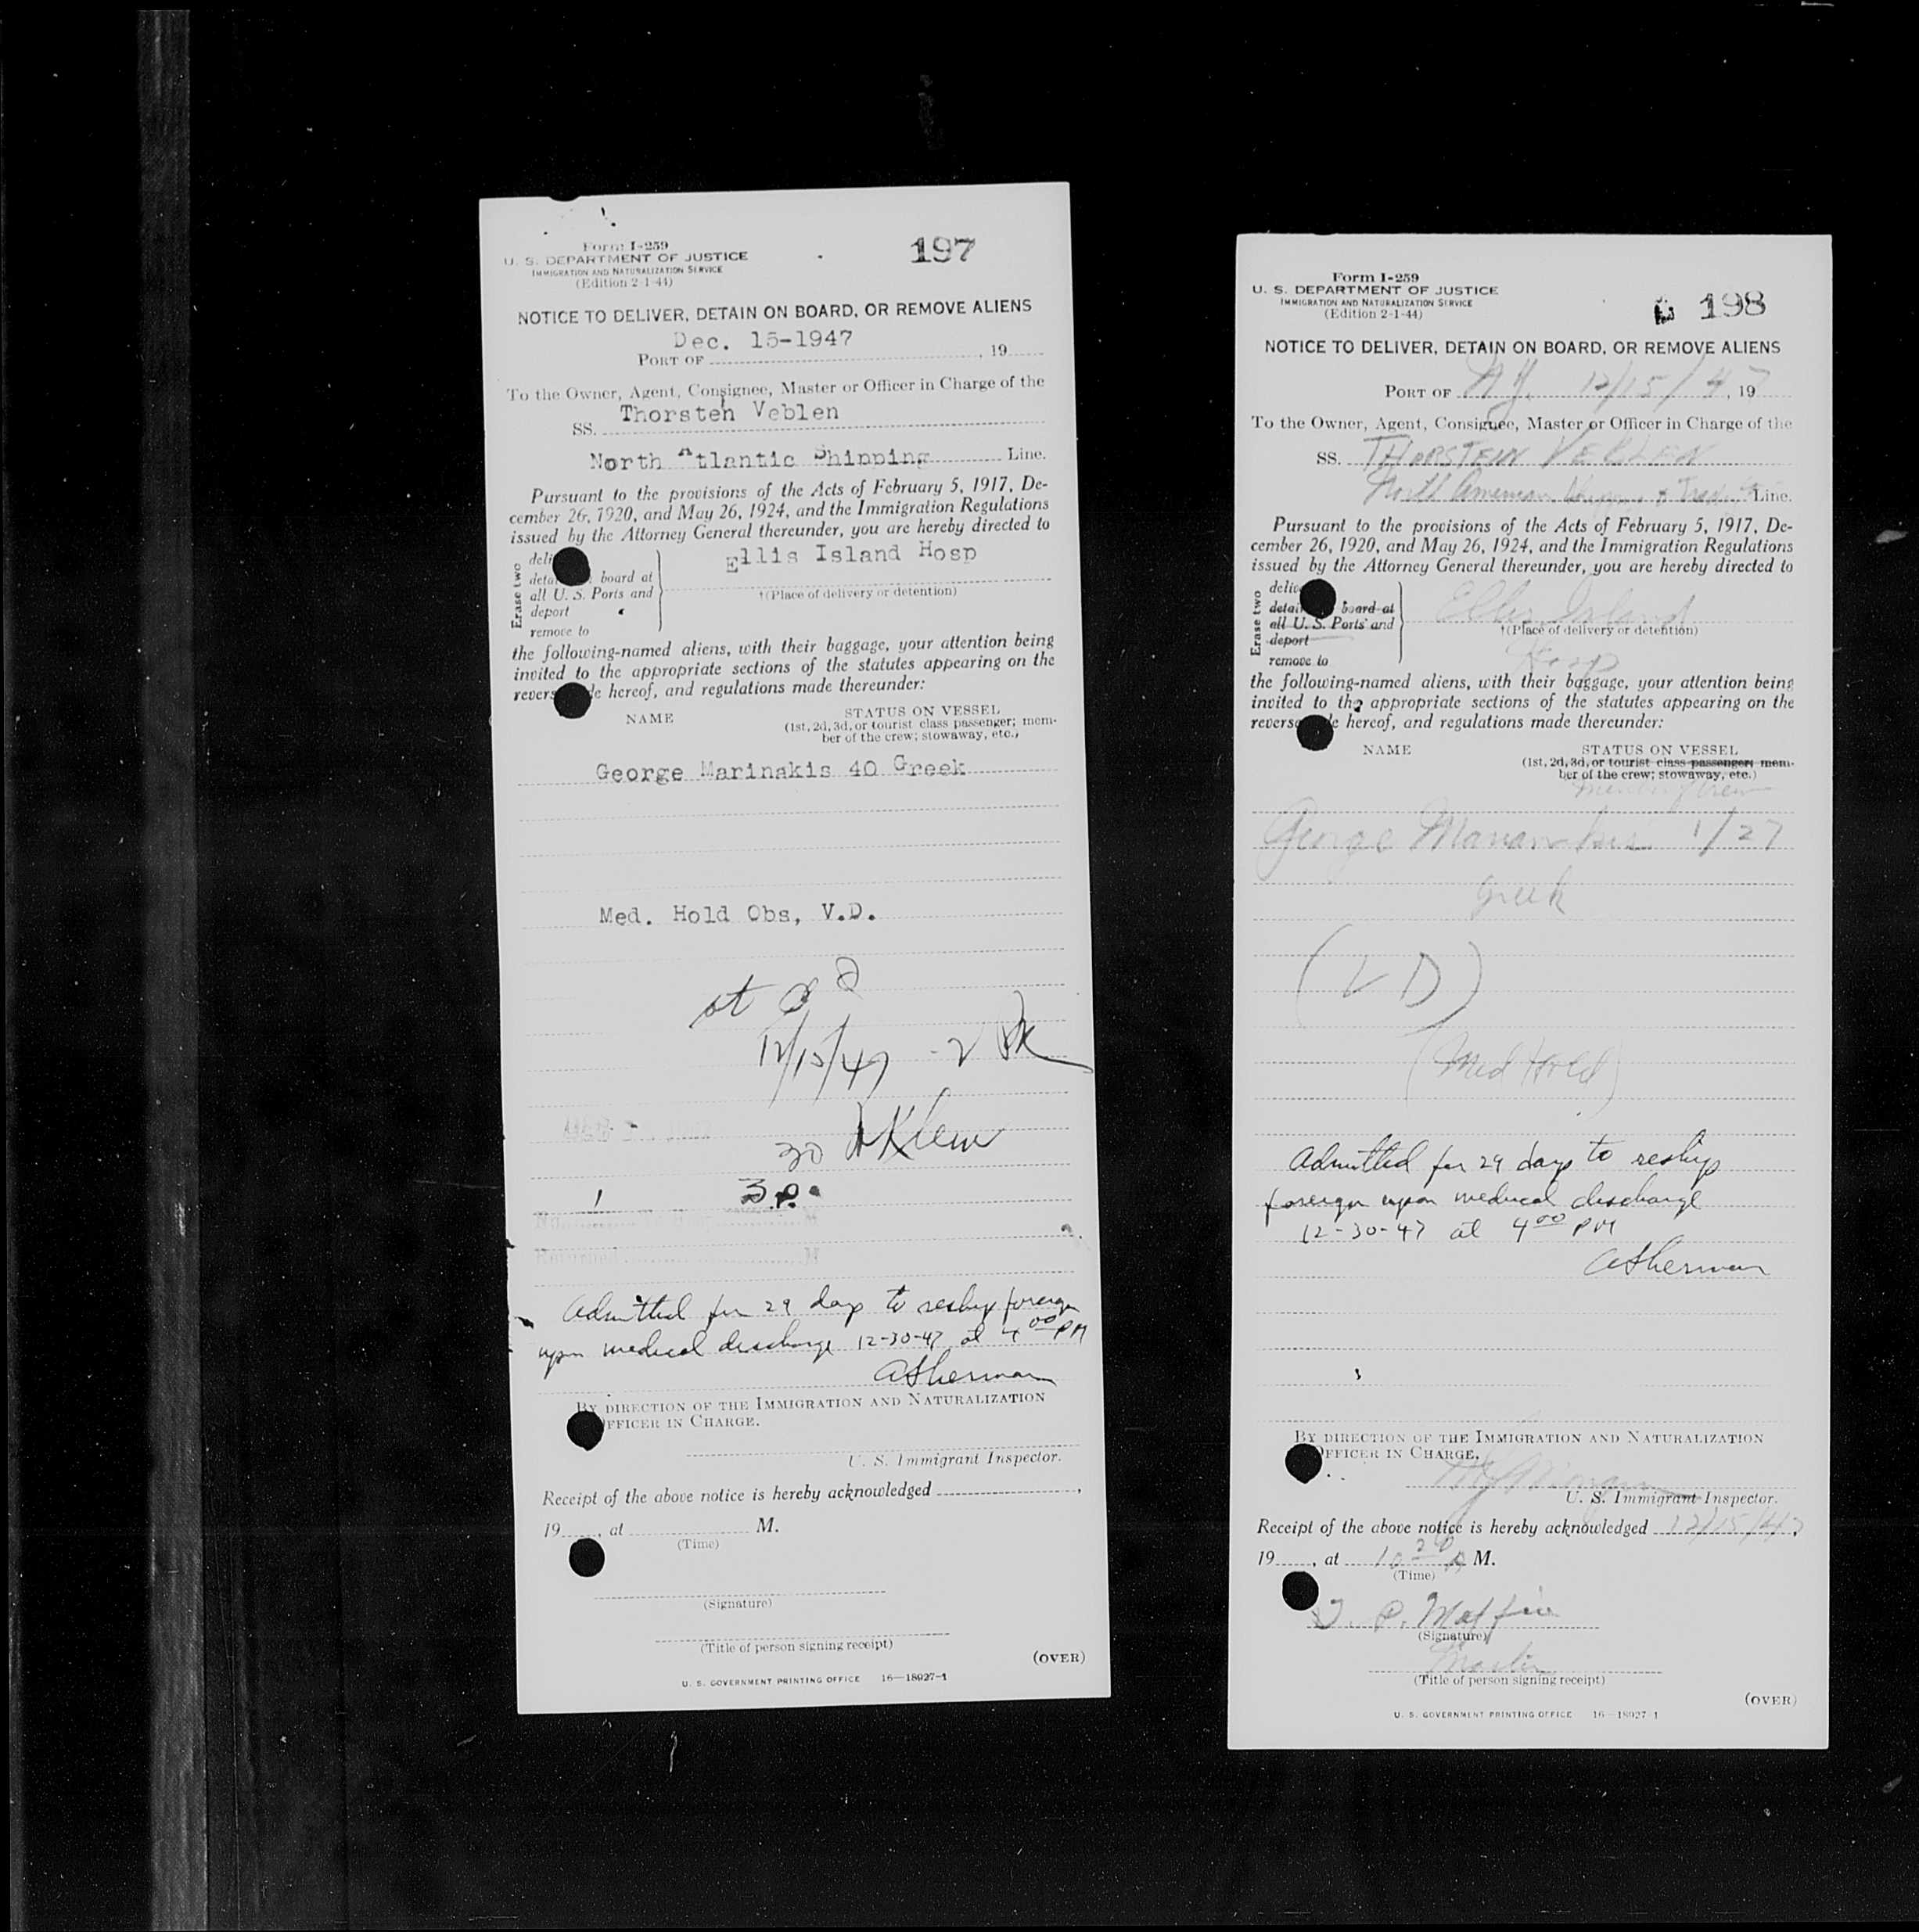 Form I-259
U. S. DEPARTMENT OF JUSTICE
IMMIGRATION AND NATURALIZATION SERVICE
(Edition 2-1-44)
197
NOTICE TO DELIVER, DETAIN ON BOARD, OR REMOVE ALIENS
Dec. 15-1947
PORT OF , 19
To the Owner, Agent, Consignee, Master or Officer in Charge of the
SS. Thorsten Veblen
North Atlantic Shipping Line.
Pursuant to the provisions of the Acts of February 5, 1917, De-
cember 26, 1920, and May 26, 1924, and the Immigration Regulations
issued by the Attorney General thereunder, you are hereby directed to
Erase two
deli
deta board at
all U. S. Ports and
deport
remove to
Ellis Island Hosp
†(Place of delivery or detention)
the following-named aliens, with their baggage, your attention being
invited to the appropriate sections of the statutes appearing on the
revers e hereof, and regulations made thereunder:
NAME
STATUS ON VESSEL
(1st, 2d, 3d, or tourist class passenger; mem-
ber of the crew; stowaway, etc.)
George Marinakis 40 Greek
Med. Hold Obs, V.D.
12/15/47
30
1 30
Admitted for 29 days to reship foreign
upon medical discharge 12-30-47 at 4 00 PM
ASherman
BY DIRECTION OF THE IMMIGRATION AND NATURALIZATION
OFFICER IN CHARGE.
U. S. Immigrant Inspector.
Receipt of the above notice is hereby acknowledged ,
19 , at M.
(Time)
(Signature)
(Title of person signing receipt)
(OVER)
U. S. GOVERNMENT PRINTING OFFICE 16—18027-1
Form I-259
U. S. DEPARTMENT OF JUSTICE
IMMIGRATION AND NATURALIZATION SERVICE
(Edition 2-1-44)
198
NOTICE TO DELIVER, DETAIN ON BOARD, OR REMOVE ALIENS
PORT OF N.Y. 12/15/47, 19
To the Owner, Agent, Consignee, Master or Officer in Charge of the
SS. THORSTEIN VEBLEN
North American Shipping & Trading Line.
Pursuant to the provisions of the Acts of February 5, 1917, De-
cember 26, 1920, and May 26, 1924, and the Immigration Regulations
issued by the Attorney General thereunder, you are hereby directed to
Erase two
delive
detai board at
all U. S. Ports and
deport
remove to
Ellis Island
†(Place of delivery or detention)
Hosp
the following-named aliens, with their baggage, your attention being
invited to the appropriate sections of the statutes appearing on the
revers e hereof, and regulations made thereunder:
NAME
STATUS ON VESSEL
(1st, 2d, 3d, or tourist class passenger; mem-
ber of the crew; stowaway, etc.)
Member of Crew
George 1/27
Greek
(V D)
(Med Hold)
Admitted for 29 days to reship
foreign upon medical discharge
12-30-47 at 4 00 PM
ASherman
BY DIRECTION OF THE IMMIGRATION AND NATURALIZATION
OFFICER IN CHARGE.
U. S. Immigrant Inspector.
Receipt of the above notice is hereby acknowledged 12/15/47,
19 , at 10 20 A M.
(Time)
(Signature)
Master
(Title of person signing receipt)
(OVER)
U. S. GOVERNMENT PRINTING OFFICE 16—18027-1